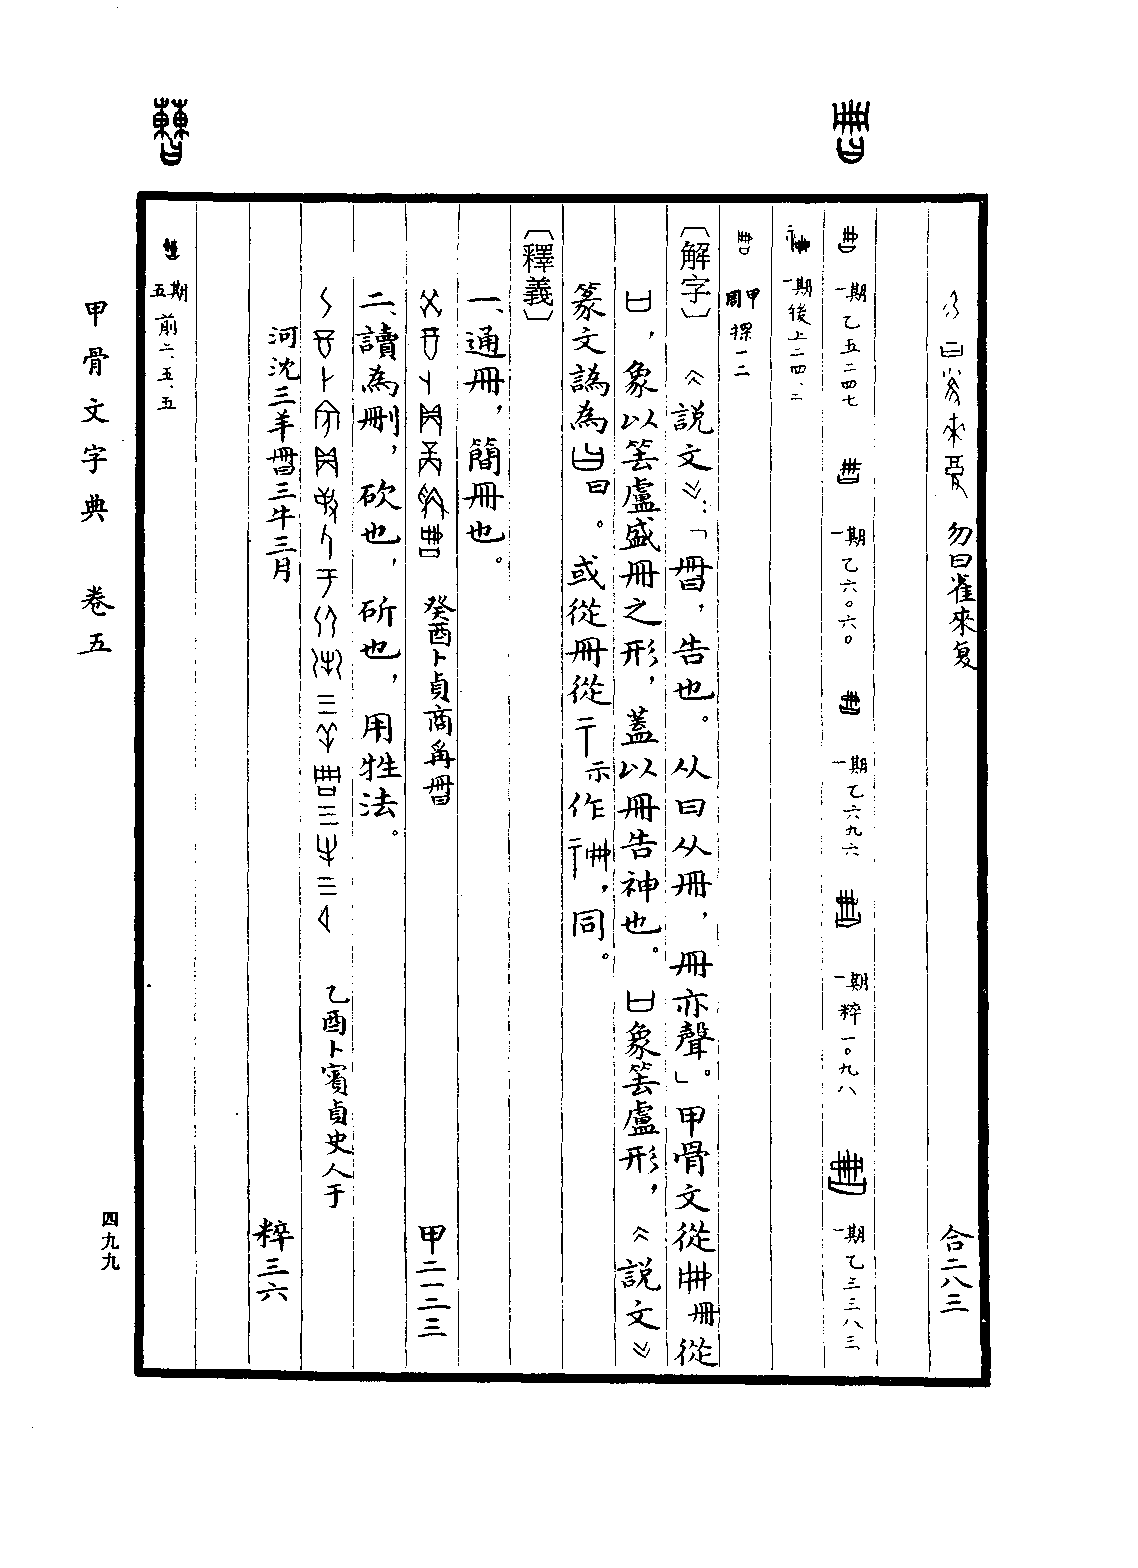 勿曰雀來复 合二八三
一期乙五二四七 一期乙六〇六〇 一期乙六九六 一期粹一〇九八 一期乙三三八三
一期後上二四、二
周甲探一二
〔解字〕《説文》：「𠕋，告也。从曰从冊，冊亦聲。」甲骨文從冊從
𠙵，象以䇬盧盛冊之形，蓋以冊告神也。𠙵象䇬盧形，《説文》
篆文譌為曰。或從冊從示作，同。
〔釋義〕
一、通冊，簡冊也。
癸酉卜貞商爯𠕋 甲二一二三
二、讀為刪，砍也，斫也，用牲法。
乙酉卜賓貞史人于
河沈三羊𠕋三牛三月 粹三六
五期前二、五、五
甲骨文字典 卷五
四九九